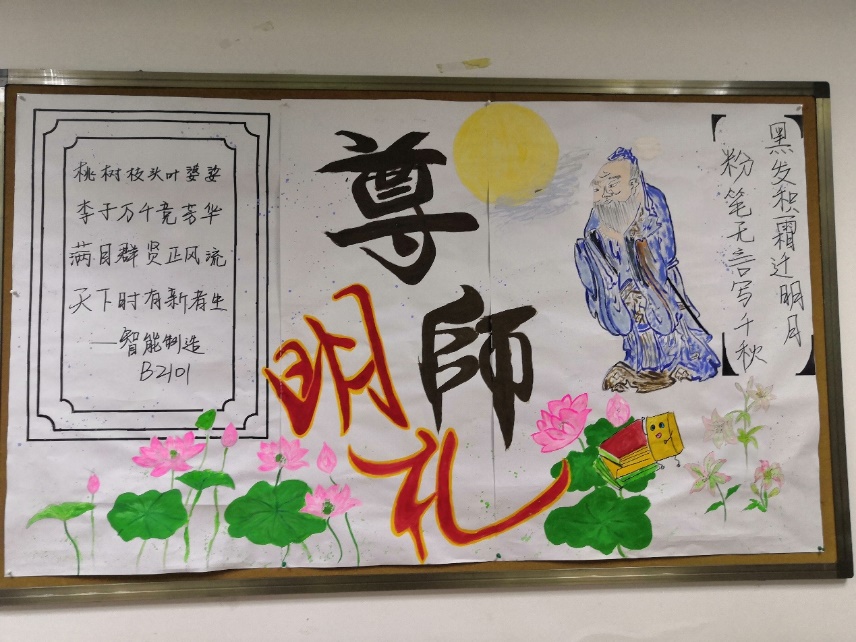 桃树枝头叶婆娑
李子万千竞芳华
满目群贤正风流
天下时有新者生
——智能制造
B2101
尊師
明礼
黑发积霜迁明月
粉笔无言写千秋